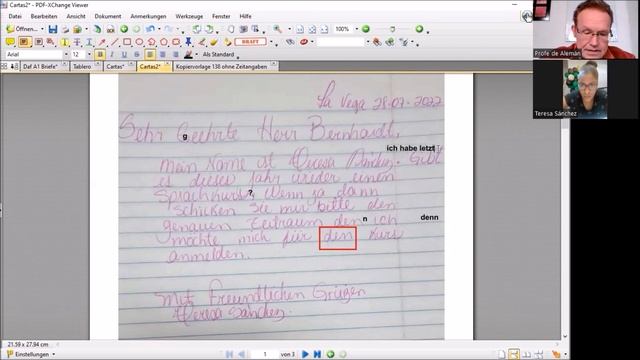 Cartas2* - PDF-XChange Viewer
Datei Bearbeiten Ansicht Dokument Kommentare Werkzeuge Fenster Hilfe
Öffnen... 100%
DRAFT
Arial 12 Als Standard
Daf A1 Briefe* Tablero Cartas* Cartas2* Kopiervorlage 138 ohne Zeitangaben
Profe de Alemán
Teresa Sánchez
La Vega 28-07-2022
Sehr Geehrte Herr Bernhardt,
g
ich habe letzt
mein Name ist Theresa Sánchez. Gibt
es dieses Jahr wieder einen
Sprachkurs. Wenn ja dann
?
schicken Sie mir bitte den
genauen Zeitraum den ich
n
denn
möchte mich für den Kurs
anmelden.
Mit Freundlichen Grüßen
Theresa Sánchez
21.59 x 27.94 cm
Einstellungen 1 von 3